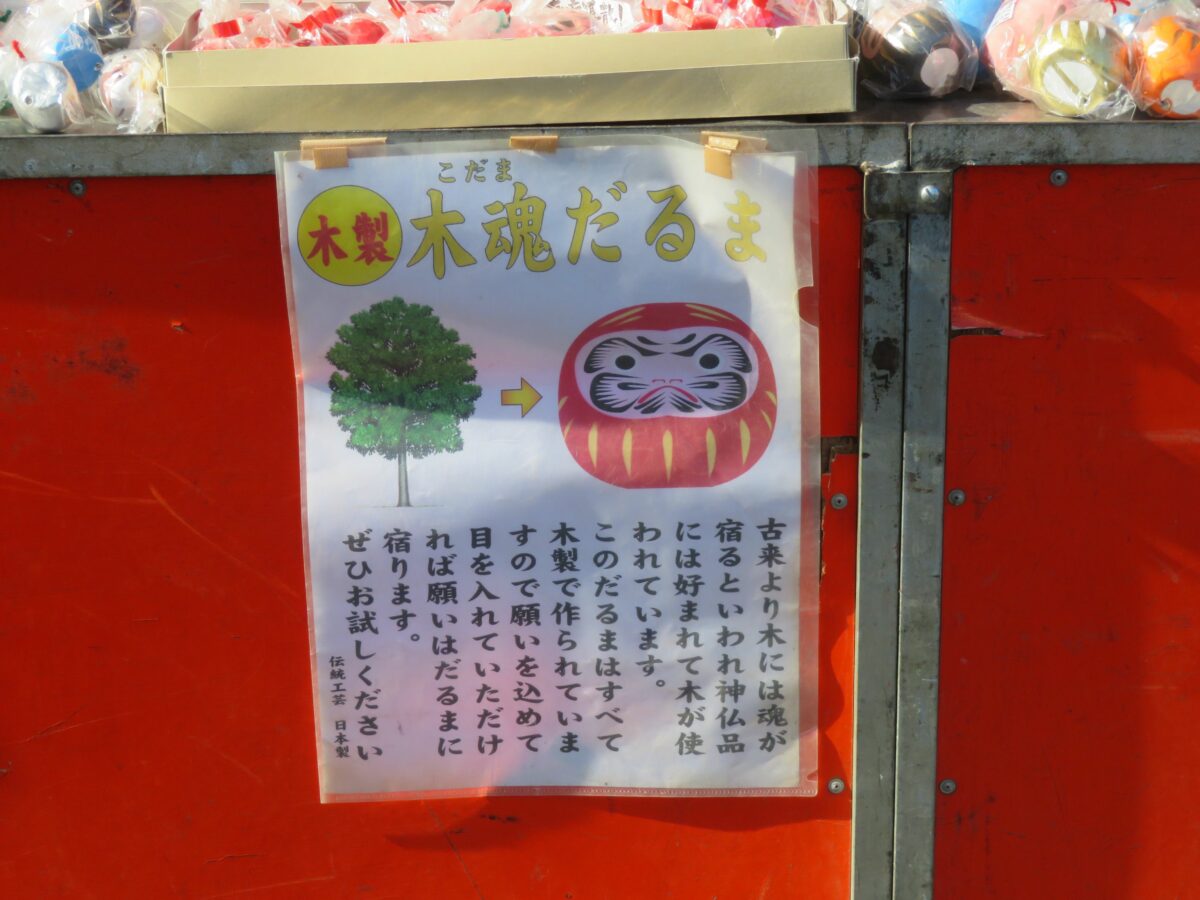 こだま
木製
木魂だるま
古来より木には魂が
宿るといわれ神仏品
には好まれて木が使
われています。
このだるまはすべて
木製で作られていま
すので願いを込めて
目を入れていただけ
れば願いはだるまに
宿ります。
ぜひお試しください
伝統工芸 日本製